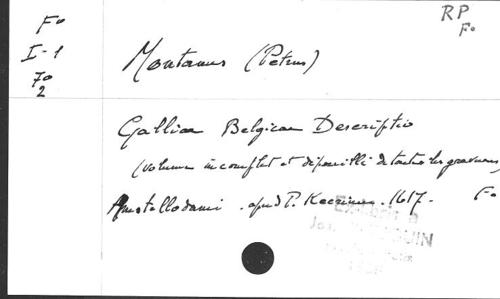 Fo
I-1
70
2
RP
Fo
Montanus (Petrus)
Galliae Belgicae Descriptio
(volume incomplet et dépouillé de toutes les gravures)
Amstellodami . apud P. Kaerium . 1617 . Fo